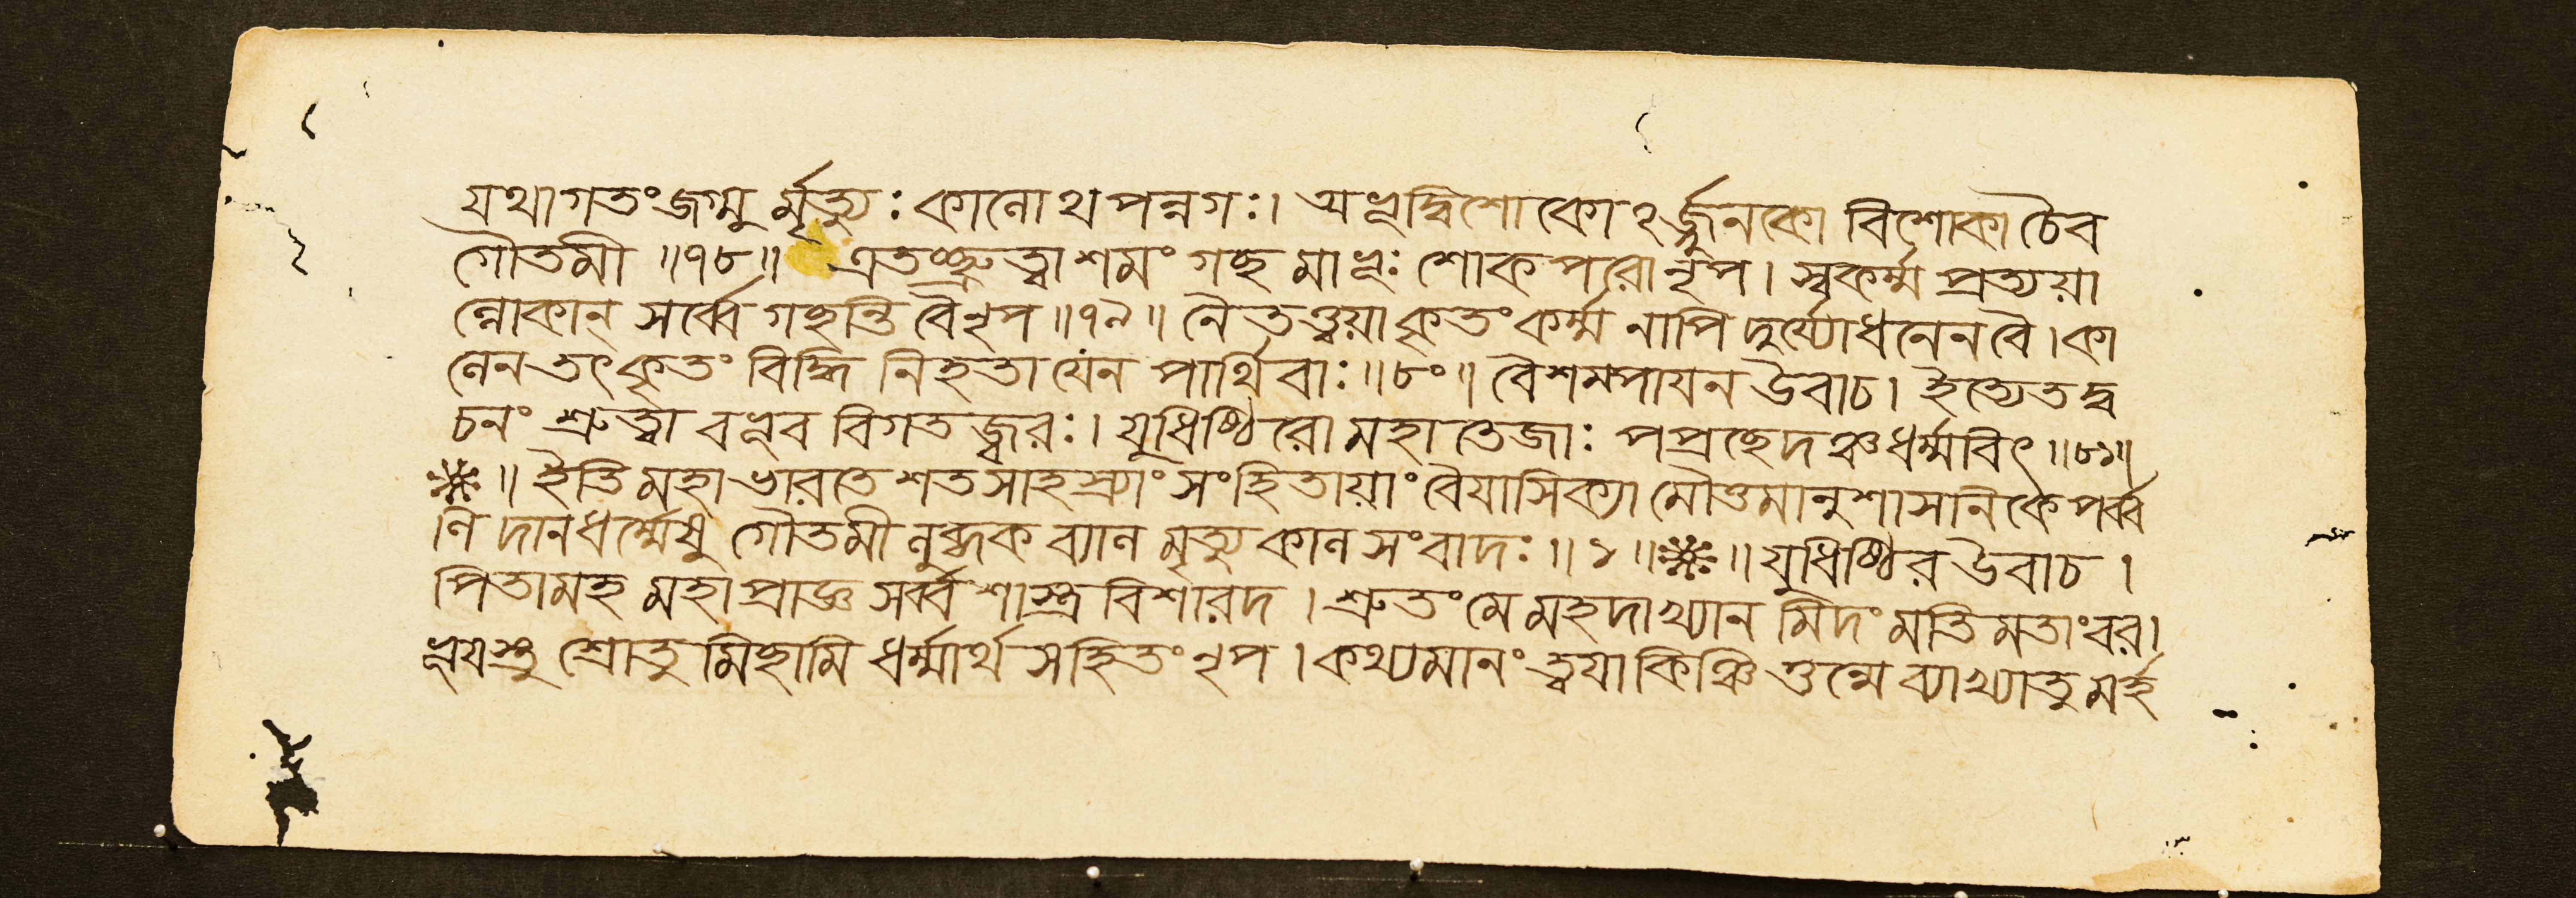 যথাগতং জগ্মু র্মৃত্যুঃ কালোথ পন্নগঃ। অভূদ্বিশোকোঽর্জ্জুনকো বিশোকা চৈব
গৌতমী ॥৭৮॥ এতচ্ছ্রুত্বা শমং গচ্ছ মা ভূঃ শোকপরো নৃপ। স্বকর্ম্ম প্রত্যয়া
ল্লোকান্ সর্ব্বে গচ্ছন্তি বৈ নৃপ ॥৭৯॥ নৈতত্ত্বয়া কৃতং কর্ম্ম নাপি দুর্য্যোধনেন বৈ। কা
লেন তৎ কৃতং বিদ্ধি নিহতা যেন পার্থিবাঃ ॥৮০॥ বৈশমপায়ন উবাচ। ইত্যেতদ্ব
চনং শ্রুত্বা বভূব বিগতজ্বরঃ। যুধিষ্ঠিরো মহাতেজাঃ পপ্রচ্ছেদঞ্চ ধর্ম্মবিৎ ॥৮১॥
॥ ইতি মহাভারতে শতসাহস্র্যাং সংহিতায়াং বৈয়াসিক্যা মৌত্তমানুশাসনিকে পর্ব্ব
ণি দানধর্ম্মেষু গৌতমী লুব্ধক ব্যাল মৃত্যু কাল সংবাদঃ ॥ ১ ॥ ॥ যুধিষ্ঠির উবাচ।
পিতামহ মহাপ্রাজ্ঞ সর্ব্বশাস্ত্র বিশারদ। শ্রুতং মে মহদাখ্যান মিদং মতিমতাং বর।
ভূয়স্তু শ্রোতু মিচ্ছামি ধর্ম্মার্থ সহিতং নৃপ। কথ্যমানং ত্বয়া কিঞ্চি ত্তন্মে ব্যাখ্যাতু মর্হ